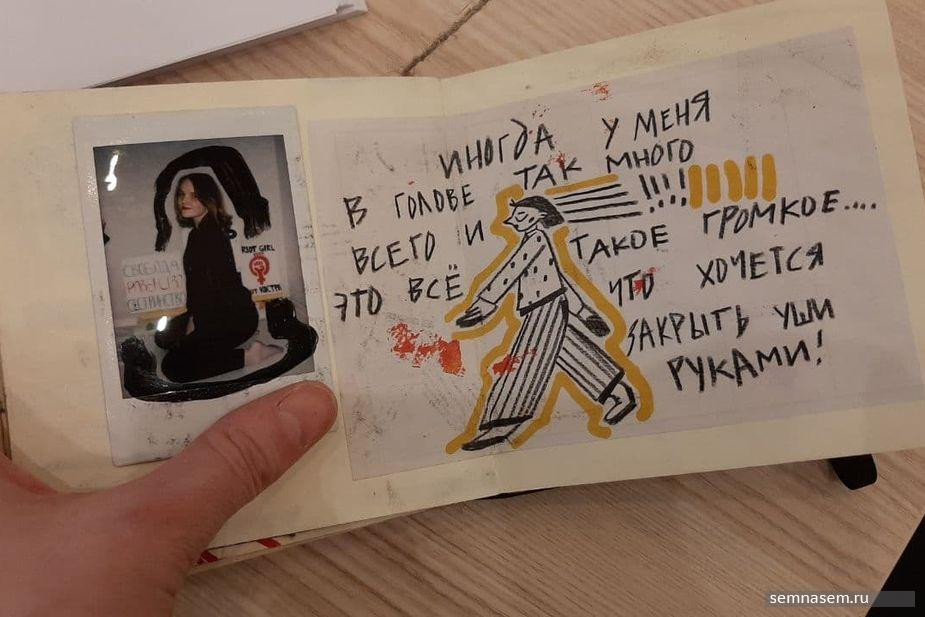 СВОБОДА
РАВЕНСТВО
СЕСТРИНСТВО
RIOT GIRL
КОСТРА
ИНОГДА У МЕНЯ
В ГОЛОВЕ ТАК МНОГО
ВСЕГО И !!!!
ТАКОЕ ГРОМКОЕ....
ЭТО ВСЁ ЧТО ХОЧЕТСЯ
ЗАКРЫТЬ УШИ
РУКАМИ!
semnasem.ru